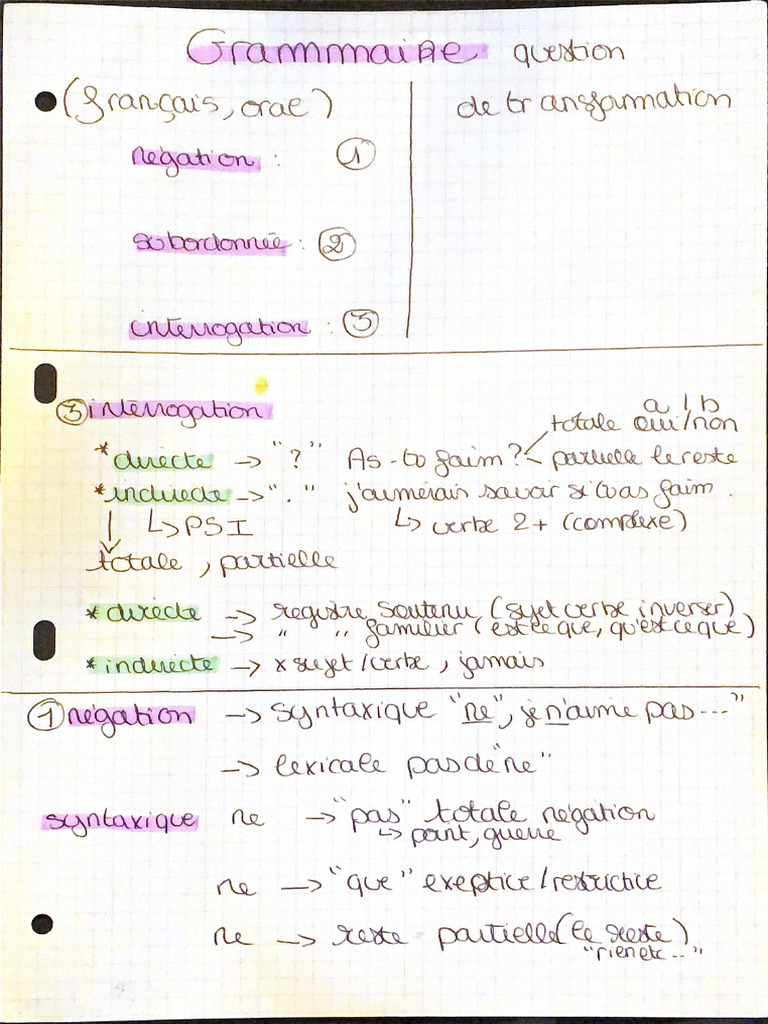 Grammmaire question
• (français, oral) de transformation
négation : ①
subordonnée : ②
interrogation ③
③ interrogation
a / b
totale oui/non
* directe -> "?" As-tu faim ? partielle le reste
* indirecte -> "." j'aimerais savoir si tu as faim.
↳ PSI ↳ verbe 2+ (complexe)
totale, partielle
* directe -> registre soutenu (sujet verbe inverser)
-> " " familier (est ce que, qu'est ce que)
* indirecte -> x sujet/verbe, jamais
① négation -> syntaxique "ne", je n'aime pas ---"
-> lexicale pas de "ne"
syntaxique ne -> "pas" totale négation
↳ point, guere
ne -> "que" exeptice/restrictice
ne -> reste partielle (le reste)
"rien etc --"